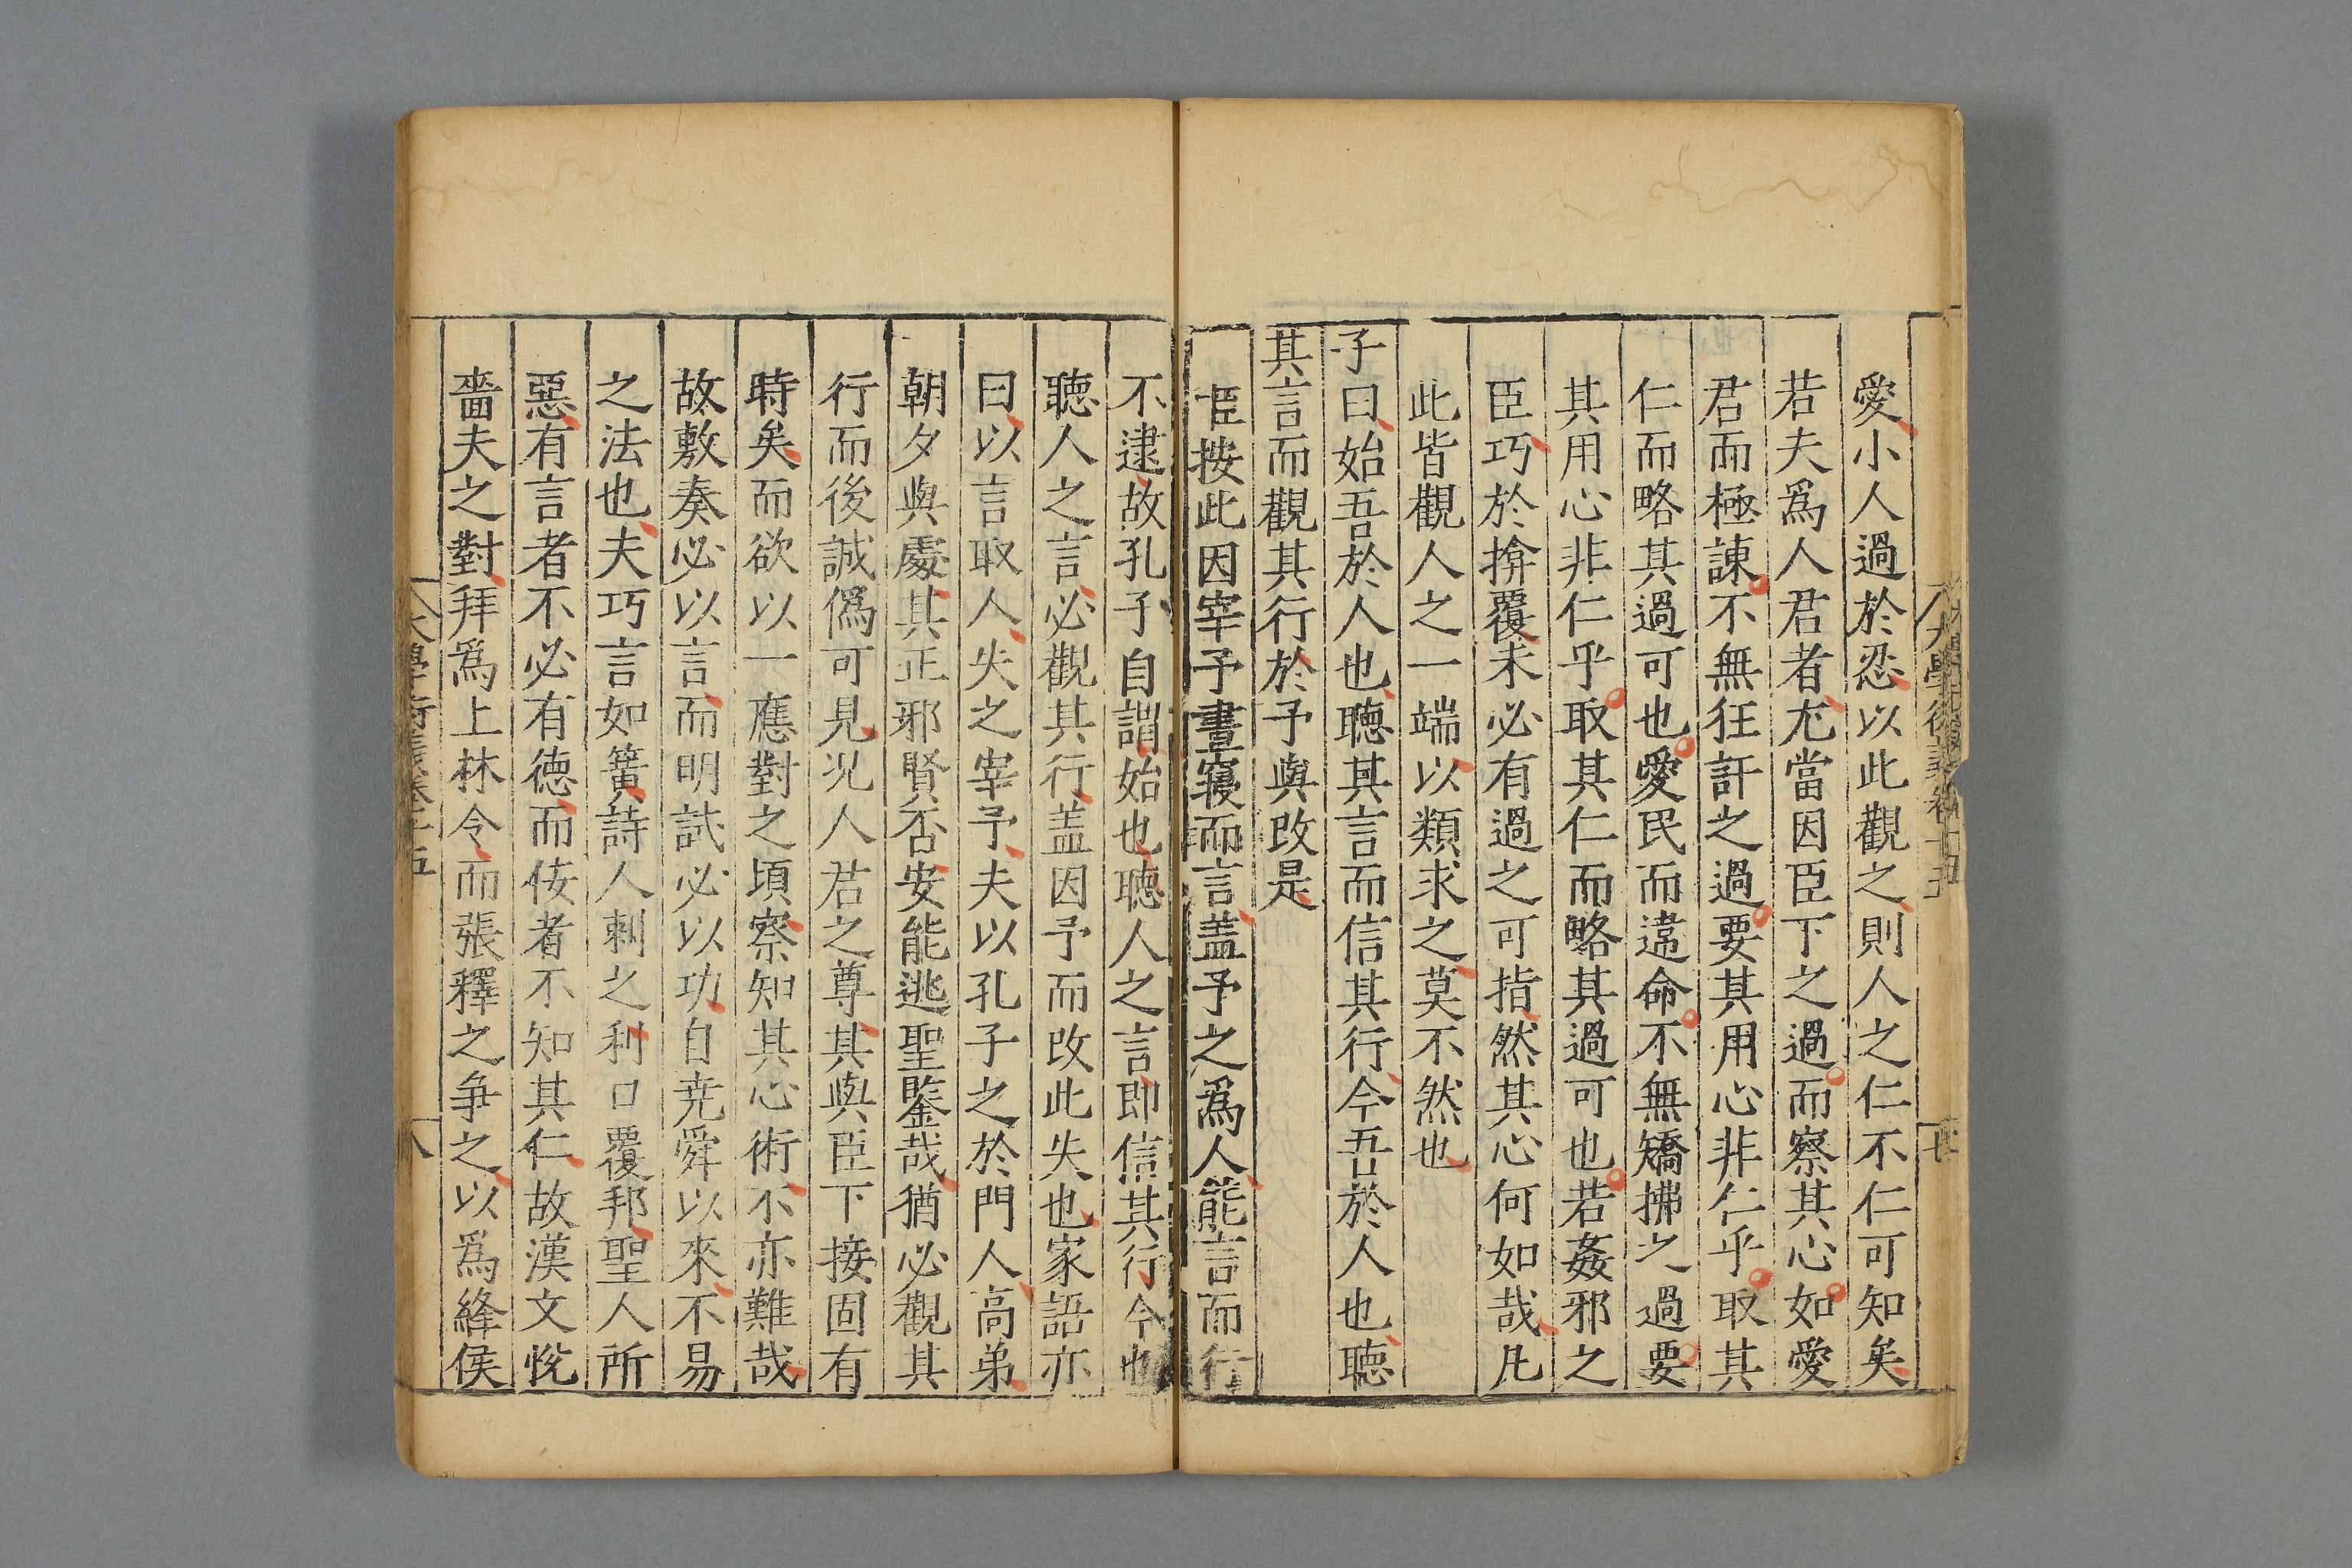 愛小人過於忍以此觀之則人之仁不仁可知矣
若夫爲人君者尤當因臣下之過而察其心如愛
君而極諫不無狂訐之過要其用心非仁乎取其
仁而略其過可也愛民而違命不無矯拂之過要
其用心非仁乎取其仁而略其過可也若姦邪之
臣巧於揜覆未必有過之可指然其心何如哉凡
此皆觀人之一端以類求之莫不然也
子曰始吾於人也聽其言而信其行今吾於人也聽
其言而觀其行於予與改是
臣按此因宰予晝寢而言蓋予之爲人能言而行
不逮故孔子自謂始也聽人之言即信其行今也
聽人之言必觀其行盖因予而改此失也家語亦
曰以言取人失之宰予夫以孔子之於門人高弟
朝夕與處其正邪賢否安能逃聖鑒哉猶必觀其
行而後誠僞可見况人君之尊其與臣下接固有
時矣而欲以一應對之頃察知其心術不亦難哉
故敷奏必以言而明試必以功自堯舜以來不易
之法也夫巧言如簧詩人刺之利口覆邦聖人所
惡有言者不必有德而佞者不知其仁故漢文悅
嗇夫之對拜爲上林令而張釋之争之以爲絳侯
大學衍義卷十五
八